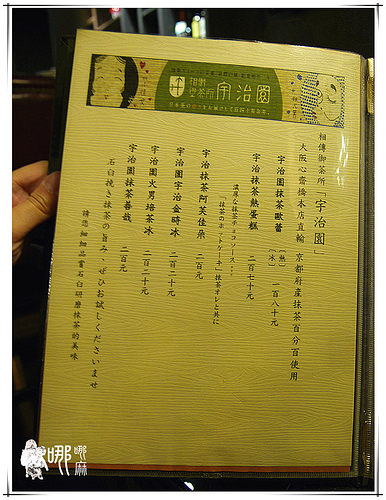 相傳御茶所 宇治園
相傳御茶所「宇治園」
大阪心齋橋本店直輸 京都府產抹茶百分百使用
宇治園抹茶歐蕾 〔熱〕〔冰〕 一百八十元
宇治抹茶熱蛋糕 二百七十元
濃厚な抹茶チョコソース…
「抹茶のホットケーキ」抹茶オレと共に
宇治抹茶阿芙佳朵 二百元
宇治園宇治金時冰 二百二十元
宇治園火男焙茶冰 二百二十元
宇治園抹茶善哉 二百元
石臼挽き抹茶の旨み、ぜひお試しくださいませ
請您細細品嘗石臼研磨抹茶的美味
哪哪麻